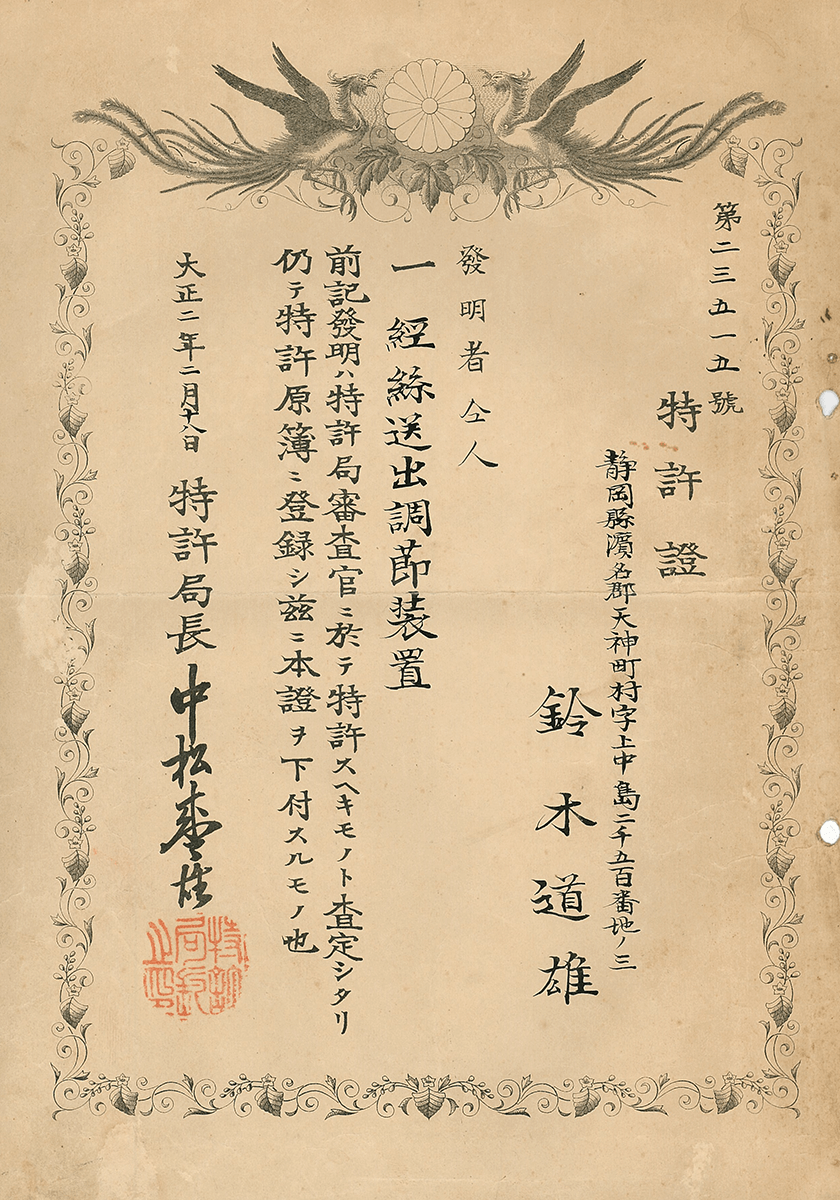 第二三五一五號
特許證
静岡縣濱名郡天神町村字上中島二千五百番地ノ三
鈴木道雄
發明者仝人
一經絲送出調節装置
前記發明ハ特許局審査官ニ於テ特許スヘキモノト査定シタリ
仍テ特許原簿ニ登録シ茲ニ本證ヲ下付スルモノ也
大正二年二月十八日
特許局長中松盛雄